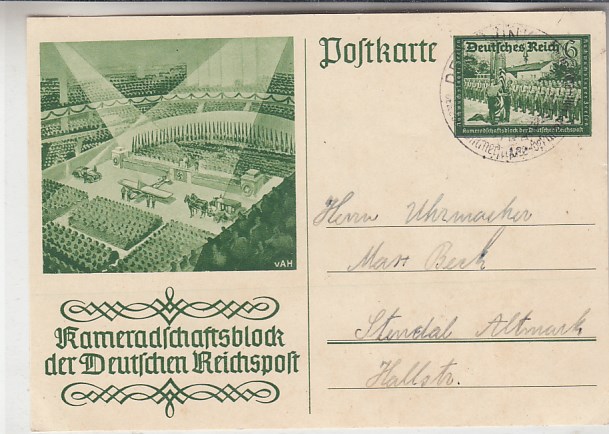 Postkarte
Deutsches Reich 6
Kameradschaftsblock der Deutschen Reichspost
vAH
Kameradschaftsblock
der Deutschen Reichspost
Herrn Uhrmacher
Max Beck
Stendal Altmark
Hallstr.